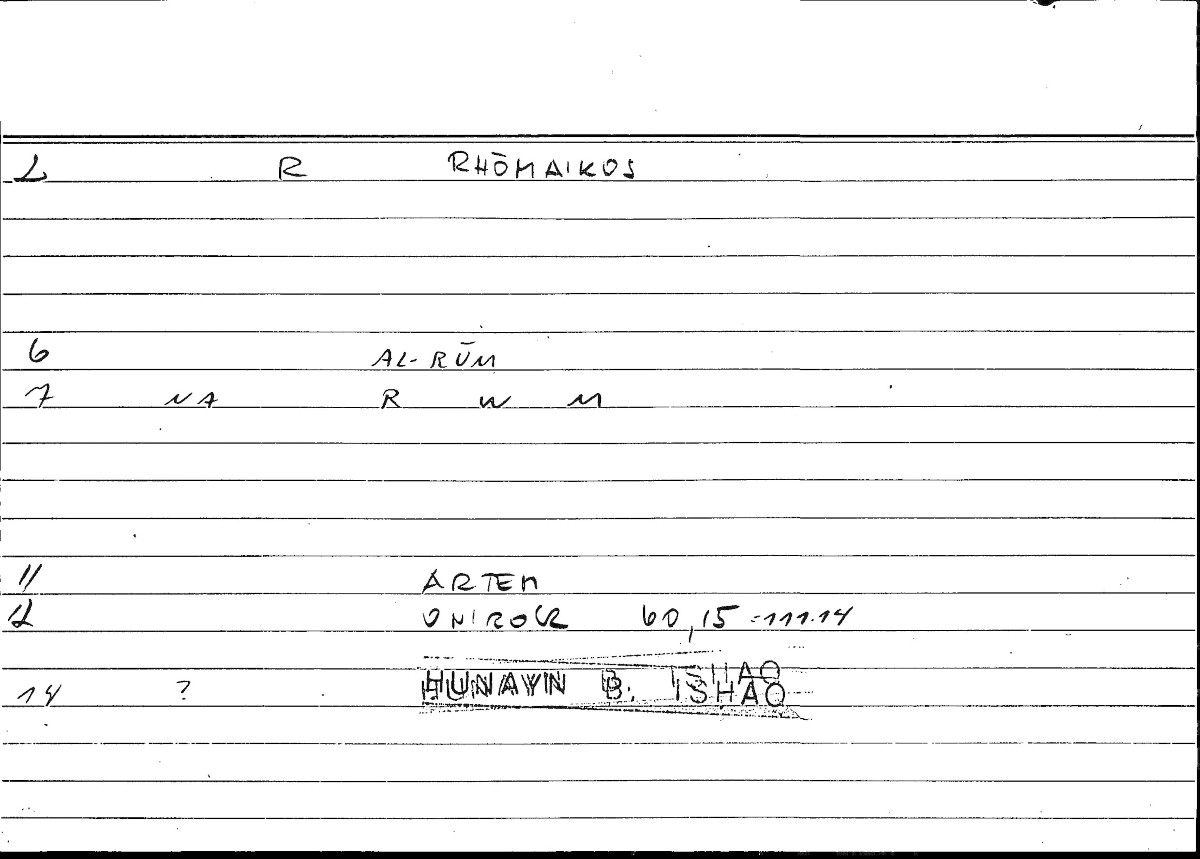 1 R RHŌMAIKOS
6 AL-RŪM
7 NA R W M
11 ARTEM
12 ONIROCR 60,15 = 111.14
14 ? HUNAYN B. ISHAQ